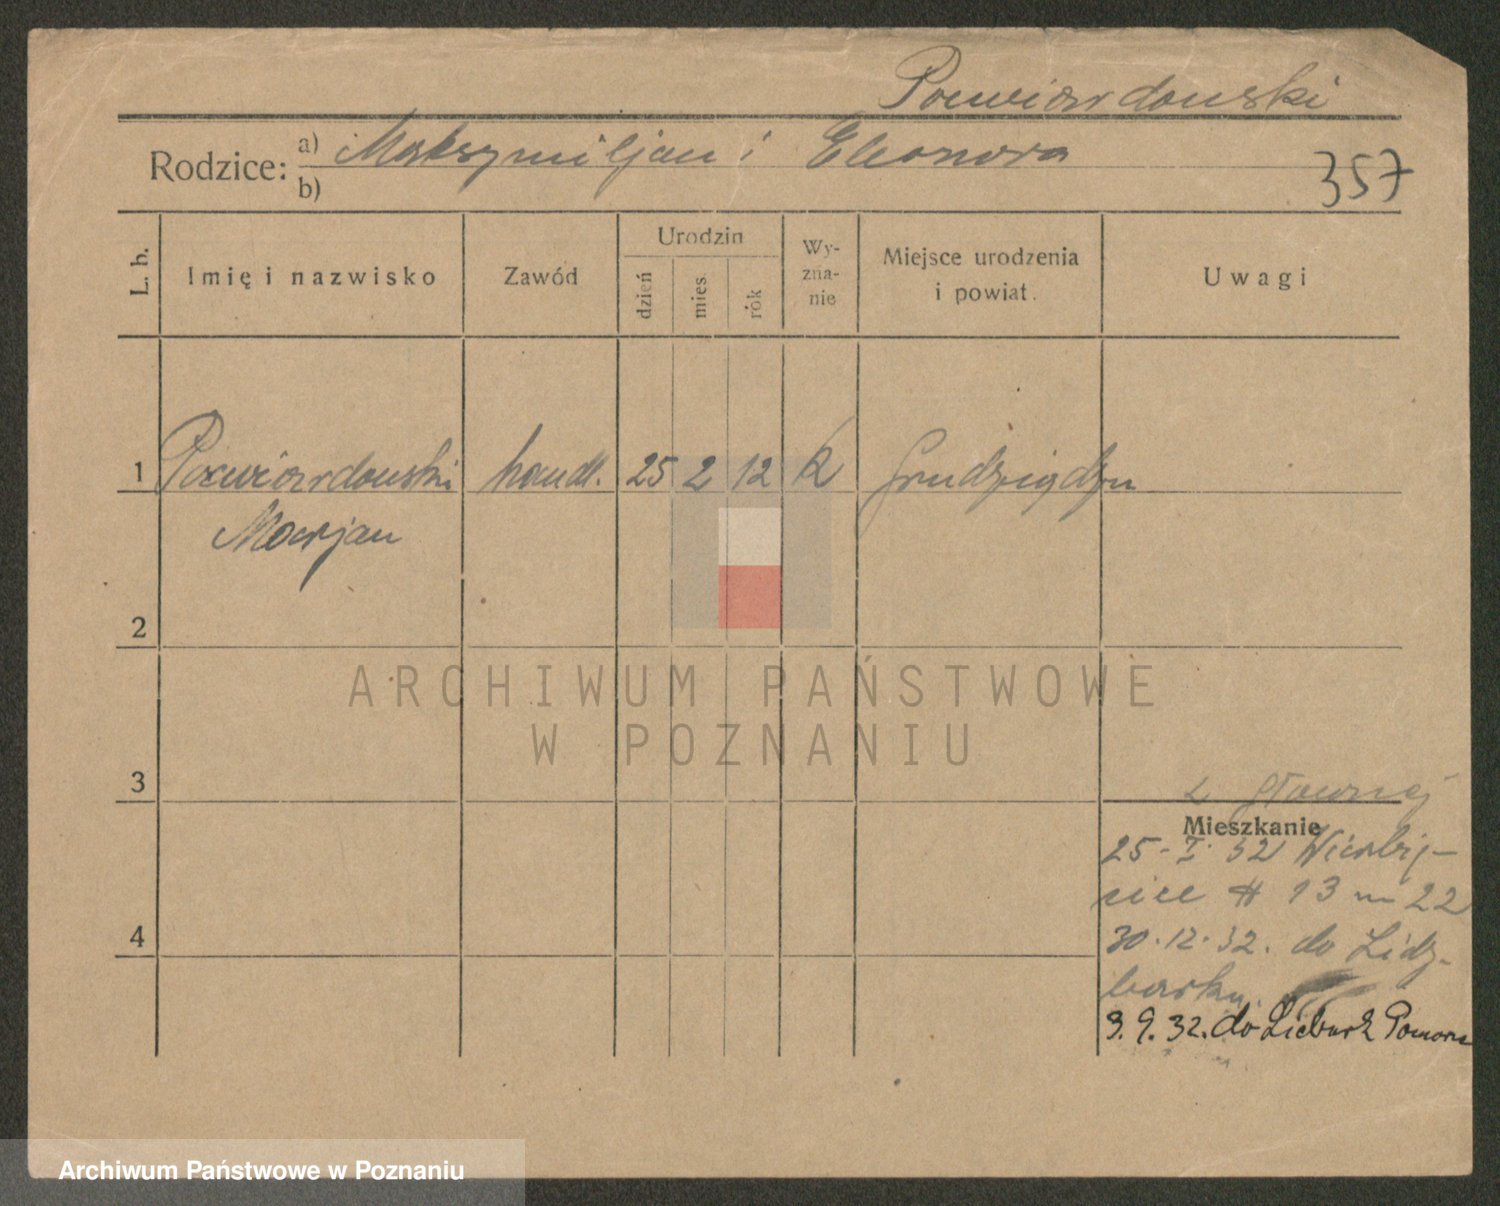 Powiardowski
Rodzice: a) Maksymiljan i Eleonora
b)
357
L. b.
Imię i nazwisko
Zawód
Urodzin
dzień
mies.
rok
Wy-
zna-
nie
Miejsce urodzenia
i powiat.
Uwagi
1 Powiardowski handl. 25 2 12 k Grudziądzu
Marjan
2
ARCHIWUM PAŃSTWOWE
W POZNANIU
3
z Głównej
Mieszkanie
25-I 32 Wierzbi-
cice # 13 m 22
4
30.12.32. do Lidz-
barku
3.9.32. do Licbark Pomorze
Archiwum Państwowe w Poznaniu